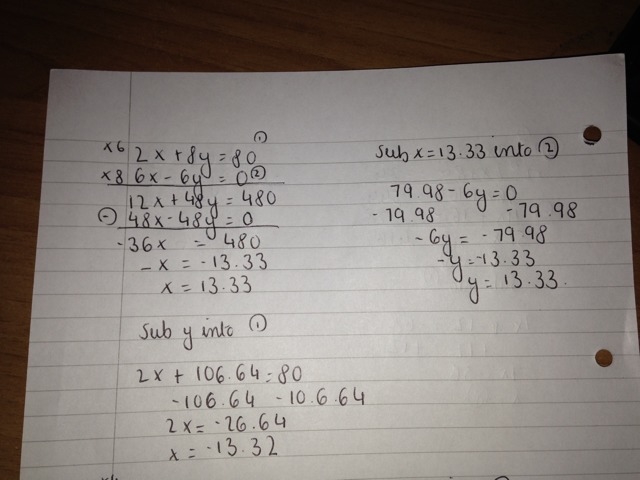 ①
x6 2x + 8y = 80
x8 6x - 6y = 0 ②
12x + 48y = 480
(-) 48x - 48y = 0
-36x = 480
-x = -13.33
x = 13.33
Sub y into ①
2x + 106.64 = 80
-106.64 -10.6.64
2x = -26.64
x = -13.32
Sub x = 13.33 into ②
79.98 - 6y = 0
-79.98 -79.98
-6y = -79.98
-y = -13.33
y = 13.33.